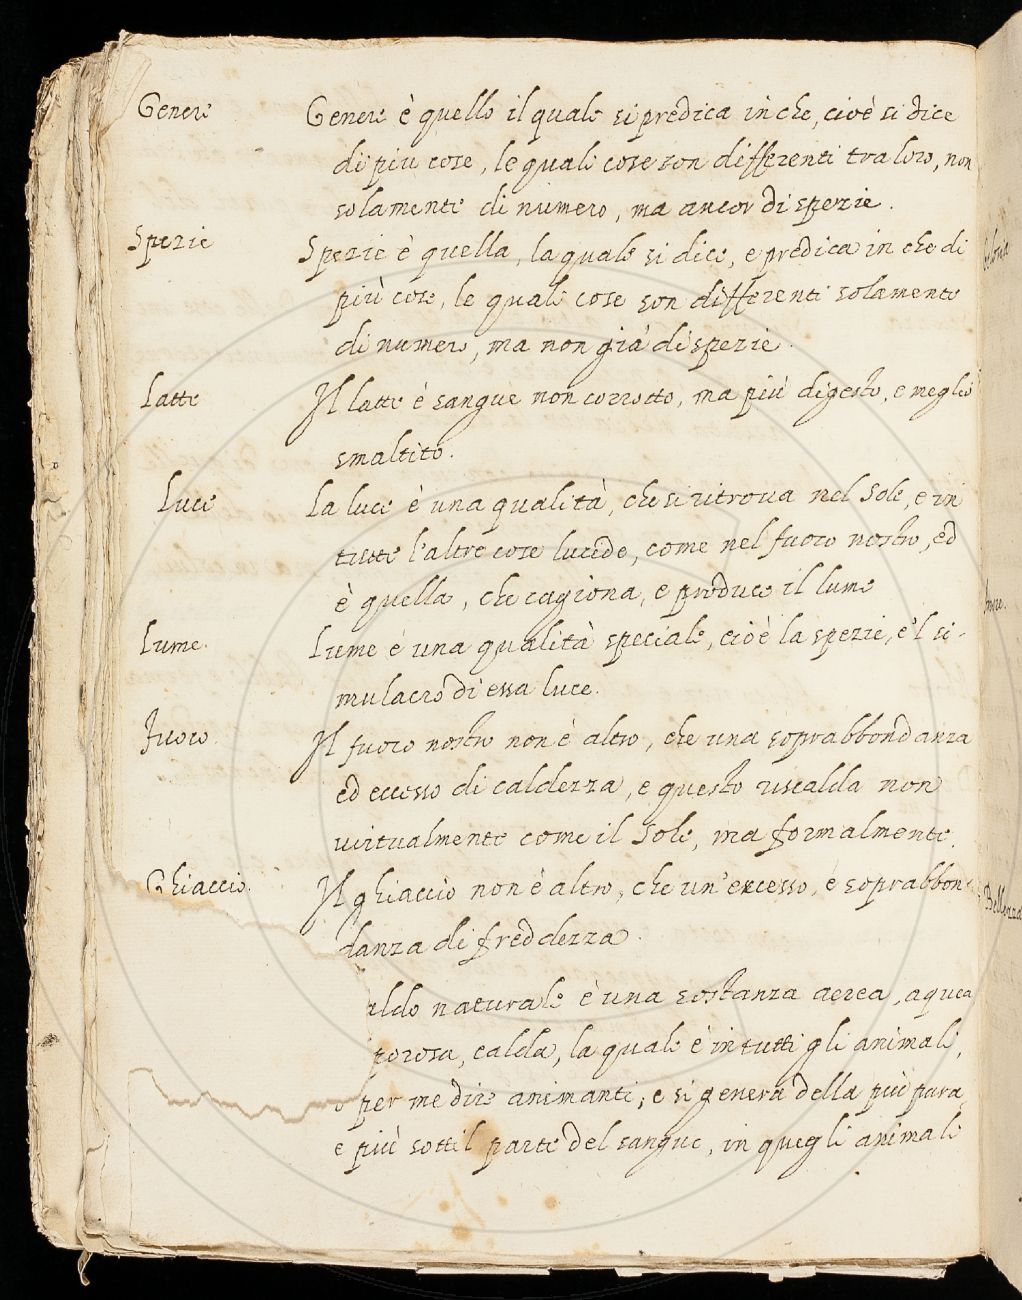 Genere Genere è quello il quale si predica in che, cioè si dice
di più cose, le quali cose son differenti tra loro, non
solamente di numero, ma ancor di spezie.
Spezie Spezie è quella, la quale si dice, e predica in che di
più cose, le quali cose son differenti solamente
di numero, ma non già di spezie.
Latte Il latte è sangue non corrotto, ma più digesto, e meglio
smaltito.
Luce La luce è una qualità, che si ritrova nel Sole, e in
tutte l'altre cose lucide, come nel fuoco nostro, ed
è quella, che cagiona, e produce il lume
Lume. Lume è una qualità speciale, cioè la spezie, e'l si-
mulacro di essa luce.
Fuoco. Il fuoco nostro non è altro, che una soprabbondanza
ed eccesso di caldezza, e questo riscalda non
virtualmente come il Sole, ma formalmente.
Ghiaccio. Il ghiaccio non è altro, che un'eccesso, e soprabbon-
danza di freddezza.
aldo naturale è una sostanza aerea, aquea
porosa, calda, la quale è in tutti gli animali,
o per me dire animanti, e si genera della più pura,
e più sottil parte del sangue, in quegli animali
Bellezza